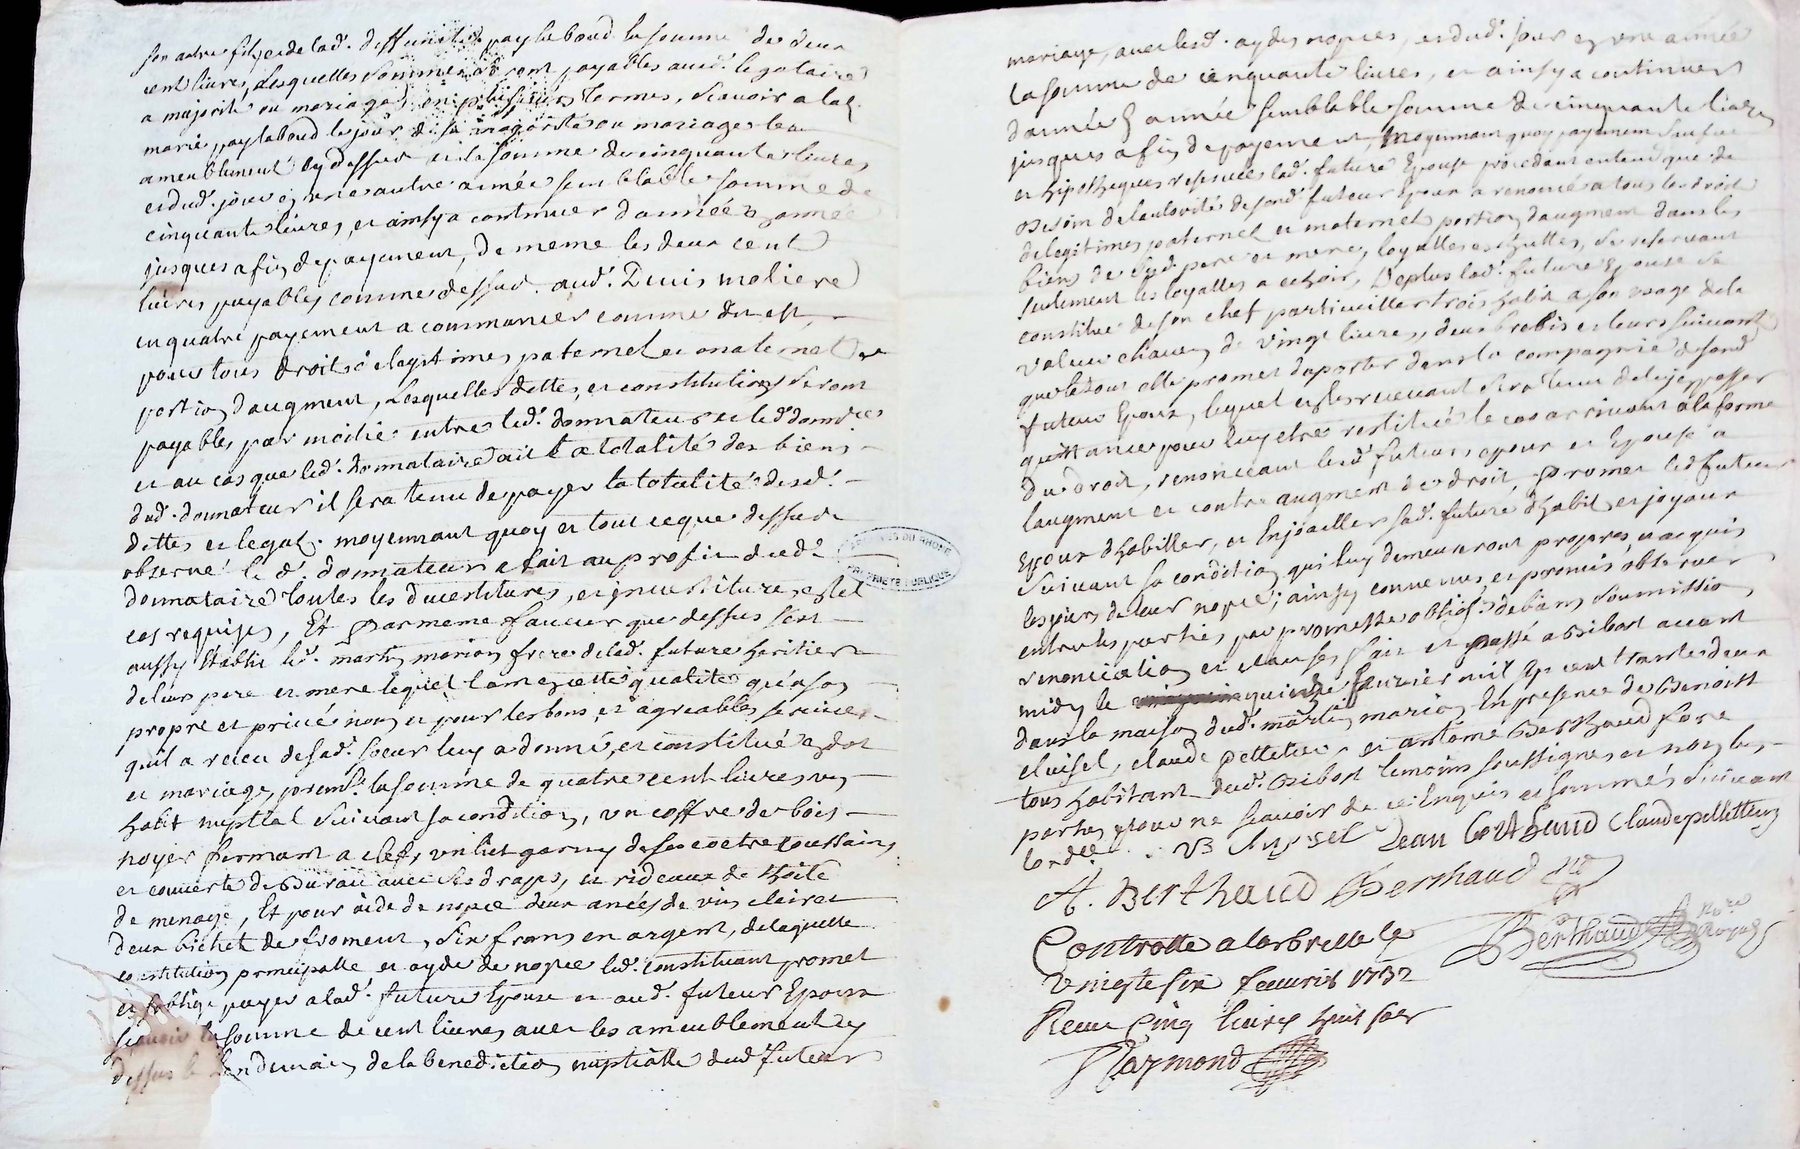 son autre fils, et de lad.e deffunte paylaboud la somme de deux
cent livres, lesquelles sommes seront payables aud. legataires
a majorité ou mariage en plusieurs termes, scavoir a lad.
marie paylaboud le jour de sa majorité ou mariage les
ameublement cy dessus et la somme de cinquante livres
et dud. jour en une autre année semblable somme de
cinquante livres, et ainsy a continuer d'année en année
jusques a fin de payement, de meme les deux cent
livres payables comme dessus aud. Denis moliere
en quatre payement a commancer comme dit est,
pour tous droits de legitimes paternel et maternel et
portion d'augment, lesquelles dettes, et constitutions seront
payables par moitié entre led. donnateur et led. donn.re
et au cas que led. donnataire ait la totalité des biens
dud. donnateur il sera tenu de payer la totalité desd.
dettes et legat. moyennant quoy et tout ce que dessus
observé led. donnateur a fait au profit dud.
donnataire toutes les devestitures, et jnvestitures, en tel
cas requises, Et par meme fiancier que dessus sest
aussy etably led. martin marion frere de lad. future heritier
de leur pere et mere lequel tam en cette qualité qu'en son
propre et privé nom et pour les bons et agreables services
quil a receu de sad. soeur luy a donné, et constitué en dot
et mariage, premt. la somme de quatre cent livres un
habit nuptial suivant sa condition, un coffre de bois
noyer fermant a clef, un lict garny de son coetre coussain,
et couverte de Burau avec ses draps, et rideaux de thoile
de menage, Et pour aide de nopce deux anées de vin clairet
deux bichet de froment, six frans en argent, de laquelle
constitution principalle et ayde de nopce led. constituant promet
et soblige payer a lad. future Epouse et aud. futeur Epoux
scavoir la somme de cent livres avec les ameublement cy
dessus le lendemain de la benediction nuptialle dud. futeur
mariage, avec lesd. aydes nopces, et dud. jour en une année
la somme de cinquante livres, et ainsy a continuer
d'année en année semblable somme de cinquante livres
jusques a fin de payement, moyennant quoy payement
et hipotheques resputes lad. future Epouse procedant entend que de
Besoin de l'autorité de sond. futeur Epoux a renoncé a tous les droit
de legitimes paternel et maternel portion d'augment dans les
biens de sesd. pere et mere, loyalles eschuttes, se reservant
seulement les loyalles a echoir, Deplus lad. future Epouse se
constitue de son chef particuillier trois habit a son usage de la
valeur chacun de vingt livres, deux brebis et leurs suivant
que le tout elle promet d'aporter dans la compagnie de sond.
futeur Epoux, lequel en les recevant sera tenu de luy en passer
quittance pour luy etre restitué le cas arrivant a la forme
du droit, renonceant lesd. futeurs epoux et Epouse a
laugment et contre augment de droit, promet led. futeur
Epoux d'habiller, et Enjoailler sad. future d'habit et joyaux
suivant sa condition qui luy demeureront propres, et acquis
les jours de leur nopce; ainsy convenus et promis observer
entre les parties par promesse oblig. de biens soumission
renonciation et clauses, fait et passé a Bibost avant
midy le quinze fevrier mil sept cent trante deux
dans la maison dud. martin marion En presence de Benoist
cluisel, claude pelletier, et antoine Berthaud fore
tous habitant dud. Bibost temoins soussignes et non les
partes pour ne scavoir de ce Enquis et sommés suivant
lord.ce B Cluysel Jean berthaud Claude pelletteur
A. Berthaud Berthaud
Berthaud No.re Royal
Controlle a larbrelle le
vingte six feuvrié 1732
Receu cinq livres huit sols
Raymond
ARCHIVES DU RHONE
PROPRIÉTÉ PUBLIQUE